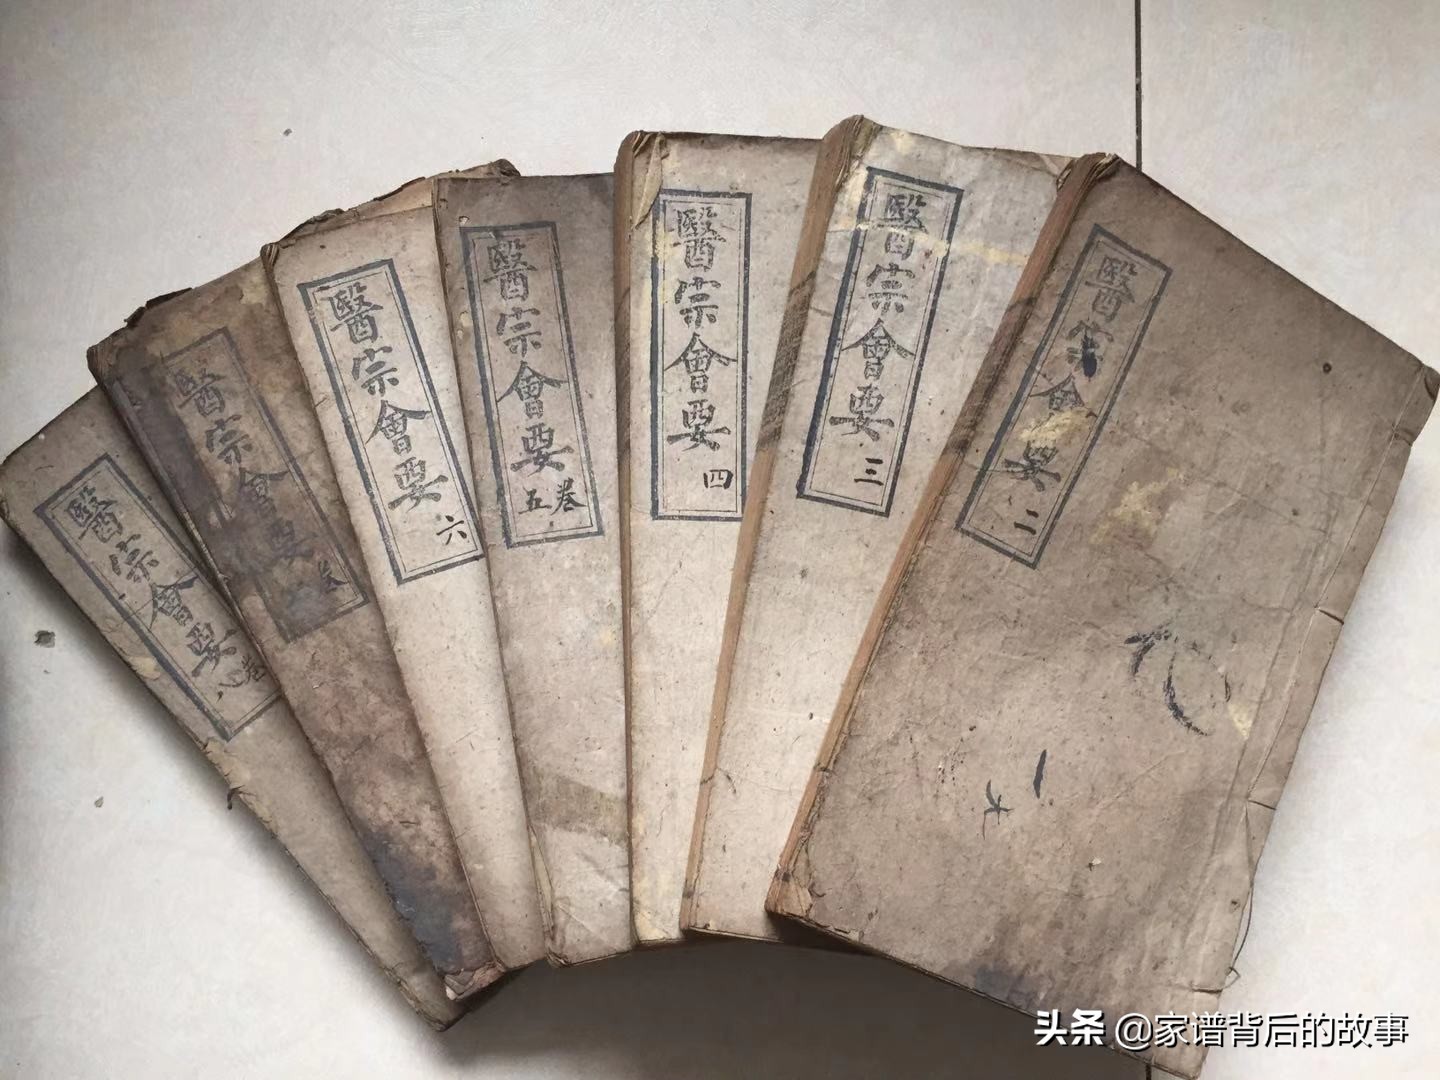 醫宗會要
二
醫宗會要
三
醫宗會要
四
醫宗會要
卷五
醫宗會要
六
醫宗會要
卷
醫宗會要
卷八
头条 @家谱背后的故事